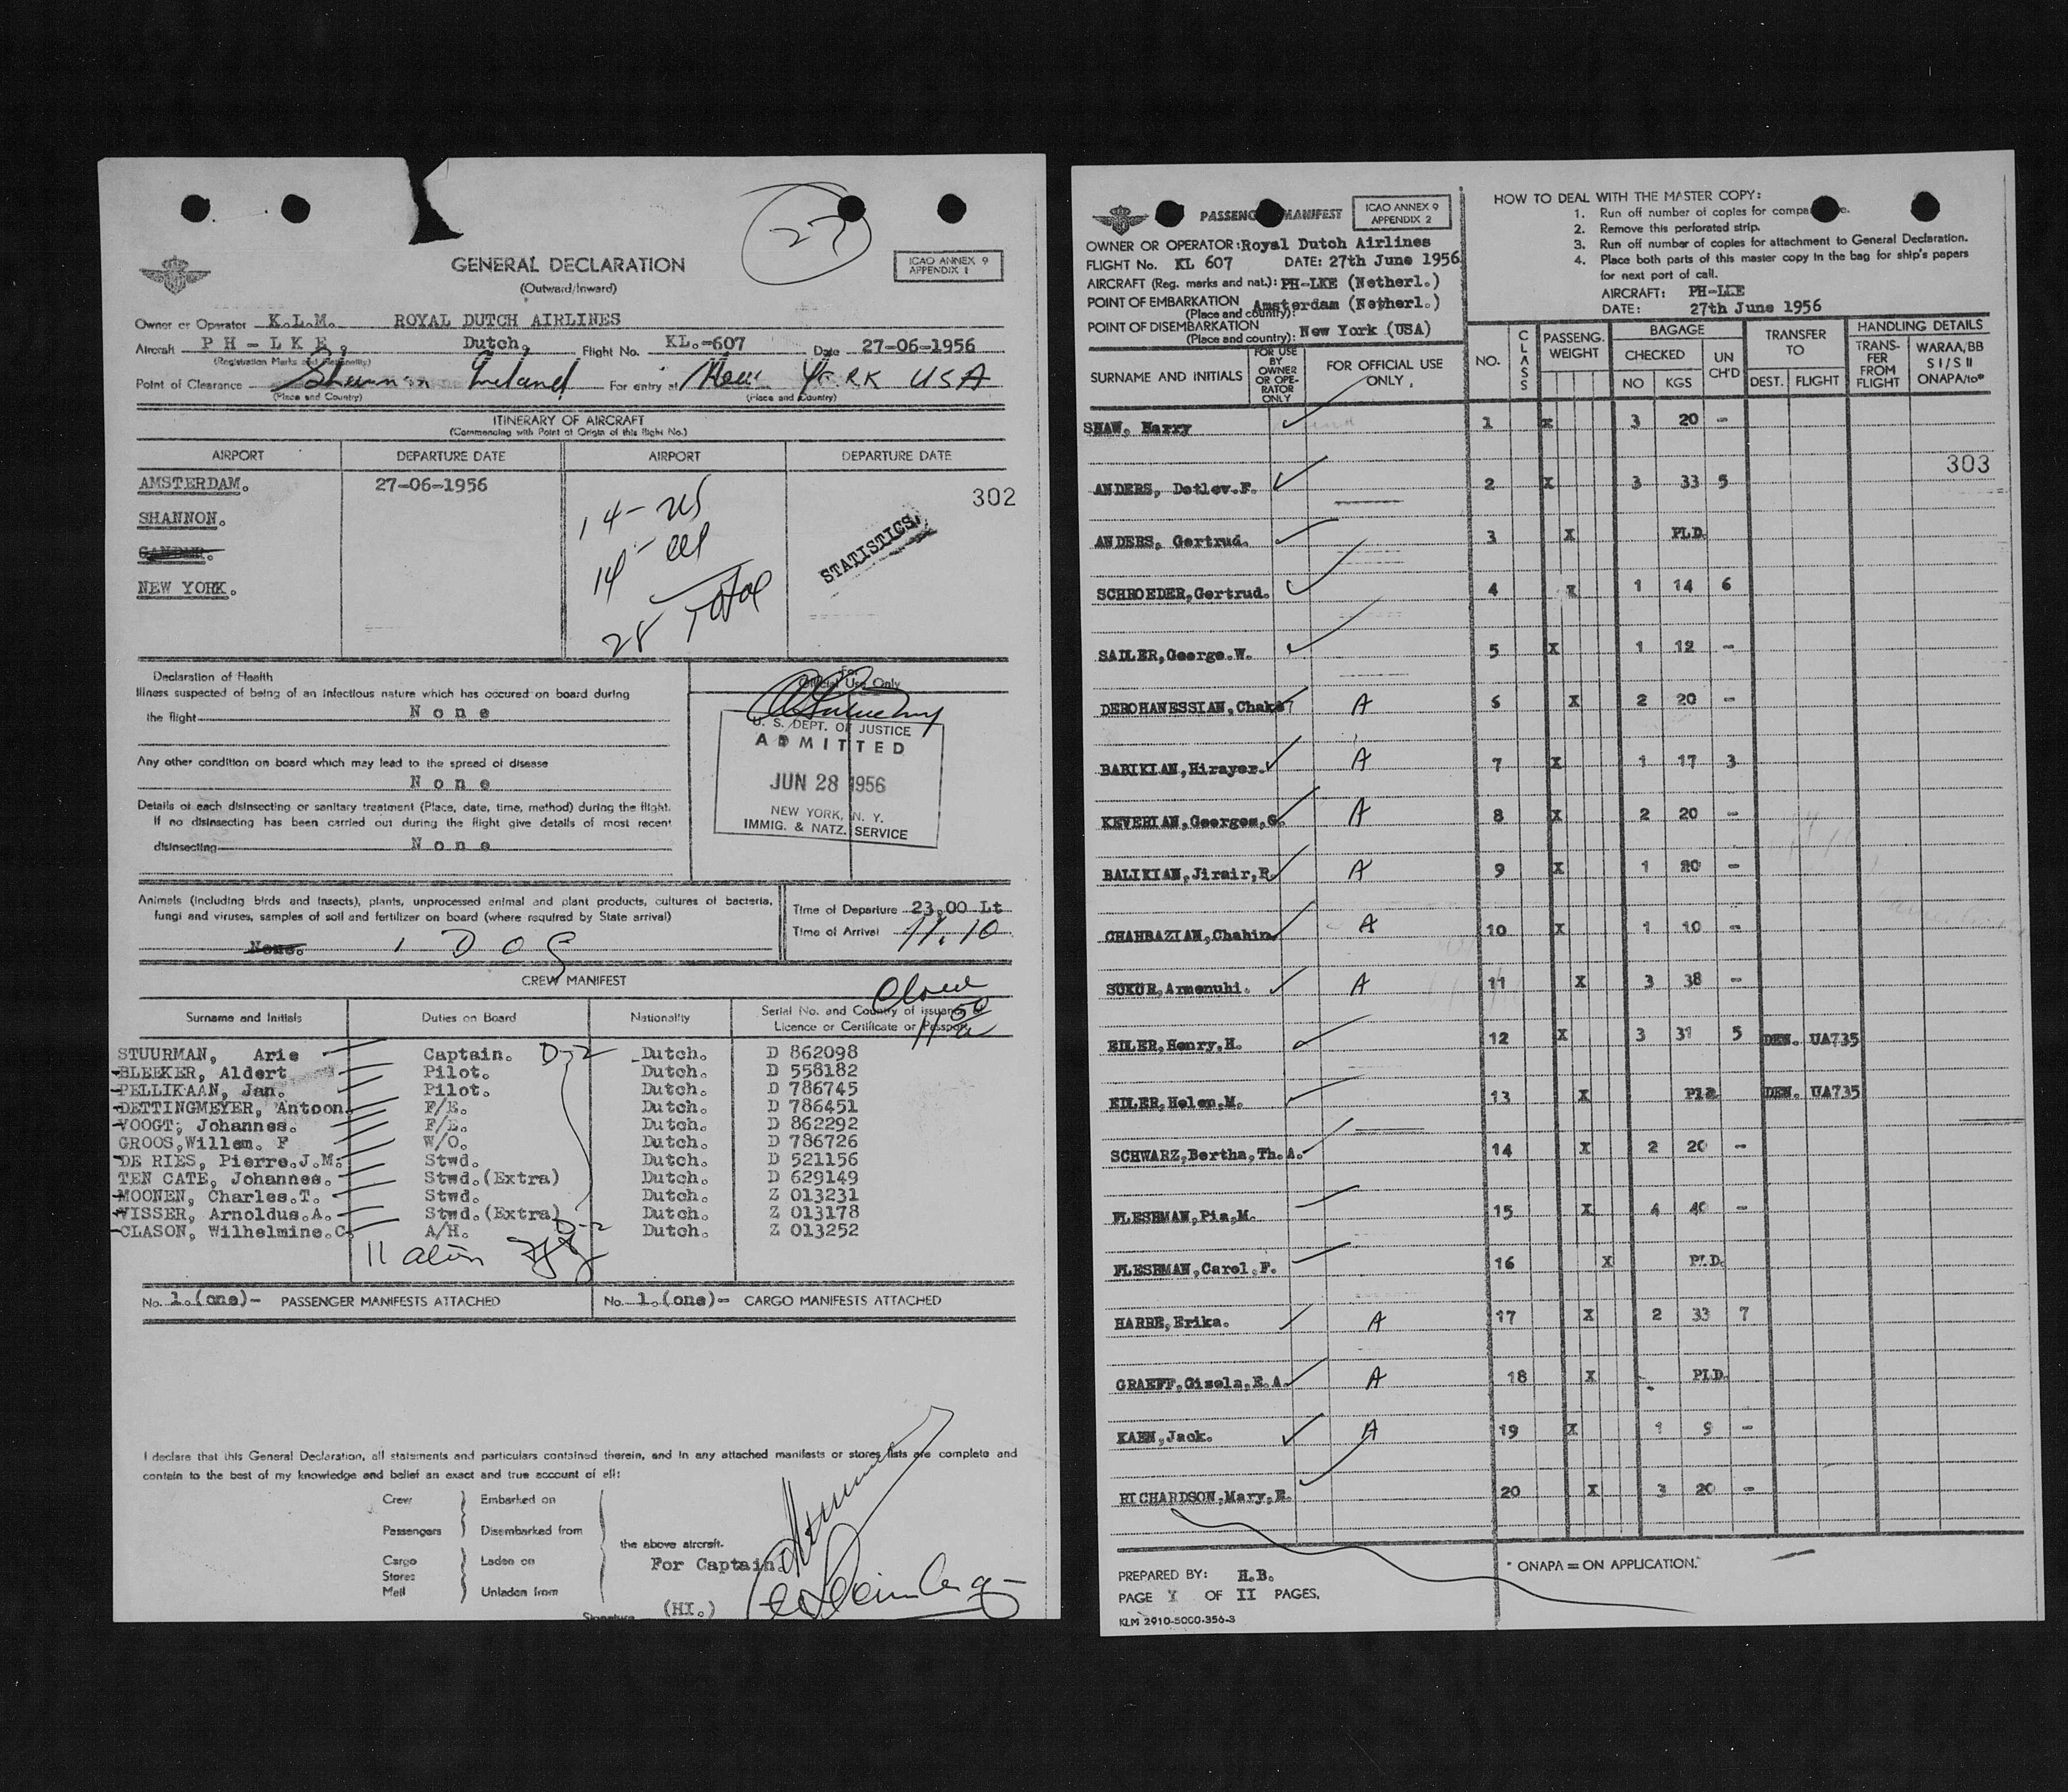 27
ICAO ANNEX 9
APPENDIX 1
GENERAL DECLARATION
(Outward/Inward)
Owner or Operator K.L.M. ROYAL DUTCH AIRLINES
Aircraft PH-LKE, Dutch, Flight No. KL.-607 Date 27-06-1956
(Registration Marks and Nationality)
Point of Clearance Shannon Ireland For entry at New York USA
(Place and Country) (Place and Country)
ITINERARY OF AIRCRAFT
(Commencing with Point of Origin of this flight No.)
AIRPORT DEPARTURE DATE AIRPORT DEPARTURE DATE
AMSTERDAM. 27-06-1956
302
SHANNON.
GANDER.
NEW YORK.
14 - US
14 -
28 Total
STATISTICS.
Declaration of Health
Illness suspected of being of an infectious nature which has occured on board during
the flight None
Any other condition on board which may lead to the spread of disease
None
Details of each disinsecting or sanitary treatment (Place, date, time, method) during the flight.
If no disinsecting has been carried out during the flight give details of most recent
disinsecting None
For
Official Use Only
U. S. DEPT. OF JUSTICE
ADMITTED
JUN 28 1956
NEW YORK, N. Y.
IMMIG. & NATZ. SERVICE
Animals (including birds and insects), plants, unprocessed animal and plant products, cultures of bacteria,
fungi and viruses, samples of soil and fertilizer on board (where required by State arrival)
None. 1 DOG
Time of Departure 23,00 Lt
Time of Arrival 11.10
CREW MANIFEST
Surname and Initials Duties on Board Nationality Serial No. and Country of issuance
Licence or Certificate or Passport
STUURMAN, Arie Captain. D-2 Dutch. D 862098
BLEEKER, Aldert Pilot. Dutch. D 558182
PELLIKAAN, Jan. Pilot. Dutch. D 786745
DETTINGMEYER, Antoon. F/E. Dutch. D 786451
VOOGT, Johannes. F/E. Dutch. D 862292
GROOS,Willem. F W/O. Dutch. D 786726
DE RIES, Pierre.J.M. Stwd. Dutch. D 521156
TEN CATE, Johannes. Stwd.(Extra) Dutch. D 629149
MOONEN, Charles.T. Stwd. Dutch. Z 013231
VISSER, Arnoldus.A. Stwd.(Extra) Dutch. Z 013178
CLASON, Wilhelmine.C. A/H. D-2 Dutch. Z 013252
11
No. 1.(one)- PASSENGER MANIFESTS ATTACHED No. 1.(one)- CARGO MANIFESTS ATTACHED
I declare that this General Declaration, all statements and particulars contained therein, and in any attached manifests or stores lists are complete and
contain to the best of my knowledge and belief an exact and true account of all:
Crew Embarked on
Passengers Disembarked from
the above aircraft.
Cargo Laden on
Stores
Mail Unladen from
For Captain.
Signature (HI.)
PASSENGER MANIFEST
ICAO ANNEX 9
APPENDIX 2
OWNER OR OPERATOR: Royal Dutch Airlines
FLIGHT No. KL 607 DATE: 27th June 1956
AIRCRAFT (Reg. marks and nat.): PH-LKE (Netherl.)
POINT OF EMBARKATION Amsterdam (Netherl.)
(Place and country):
POINT OF DISEMBARKATION New York (USA)
(Place and country):
HOW TO DEAL WITH THE MASTER COPY:
1. Run off number of copies for compa
2. Remove this perforated strip.
3. Run off number of copies for attachment to General Declaration.
4. Place both parts of this master copy in the bag for ship's papers
for next port of call.
AIRCRAFT: PH-LKE
DATE: 27th June 1956
SURNAME AND INITIALS FOR USE BY OWNER OR OPERATOR ONLY FOR OFFICIAL USE ONLY. NO. CLASS PASSENG. WEIGHT BAGAGE CHECKED NO KGS UN CH'D TRANSFER TO DEST. FLIGHT HANDLING DETAILS TRANSFER FROM FLIGHT WARAA/BB S I/S II ONAPA/to*
SHAW, Harry 1 x 3 20 -
303
ANDERS, Detlev.F. 2 X 3 33 5
ANDERS, Gertrud. 3 X PLD.
SCHROEDER,Gertrud. 4 X 1 14 6
SADLER,George.W. 5 X 1 12 -
DEROHANESSIAN,Chake A 6 X 2 20 -
BABIKIAN,Hirayer. A 7 X 1 17 3
KEVERIAN,Georges,G. A 8 X 2 20 -
BALIKIAN,Jirair,R. A 9 X 1 20 -
CHAHBAZIAN,Chahin. A 10 X 1 10 -
SUKUR,Armenuhi. A 11 X 3 38 -
EILER,Henry,H. 12 X 3 37 5 DEN. UA735
EILER,Helen,M. 13 X Pld. DEN. UA735
SCHWARZ,Bertha,Th.A. 14 X 2 20 -
FLESHMAN,Pia,M. 15 X 4 40 -
FLESHMAN,Carol,F. 16 X PLD.
HARRE,Erika. A 17 X 2 33 7
GRAEFF,Gisela,E.A. A 18 X PLD.
KAHN,Jack. A 19 X 1 9 -
RICHARDSON,Mary,E. 20 X 3 20 -
PREPARED BY: H.B.
PAGE I OF II PAGES.
KLM 2910-5000-356-3
* ONAPA = ON APPLICATION.